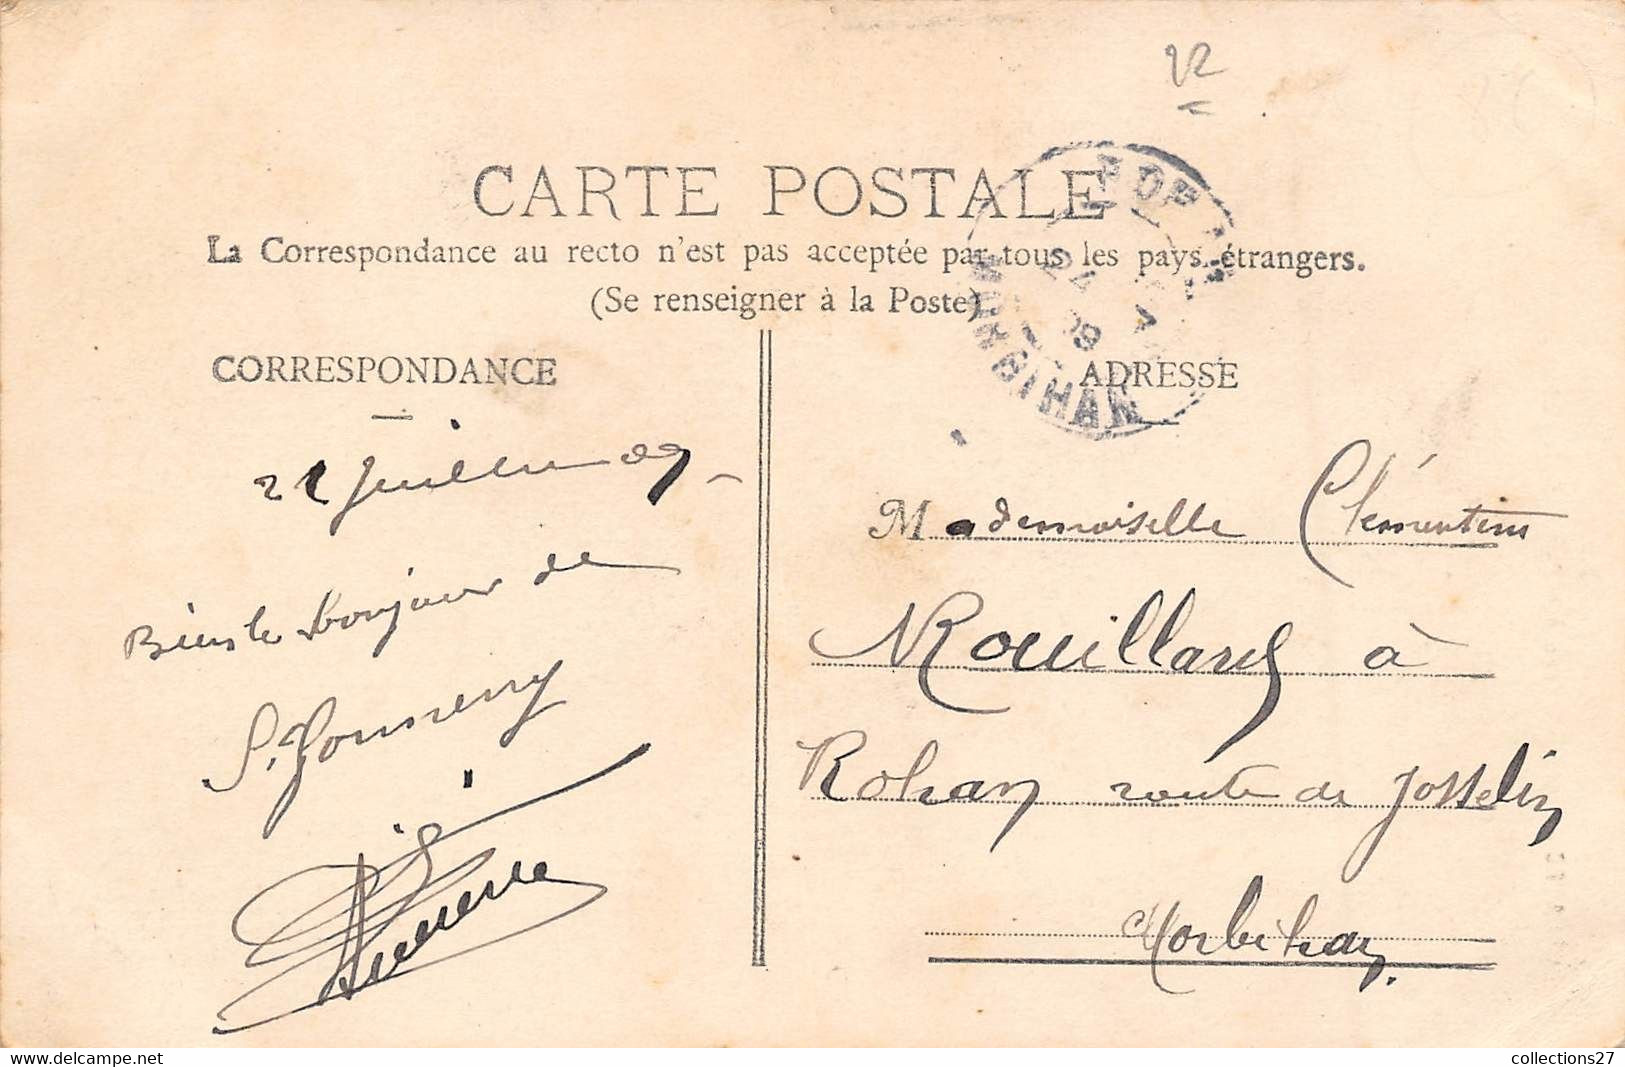 CARTE POSTALE
La Correspondance au recto n'est pas acceptée par tous les pays étrangers.
(Se renseigner à la Poste)
CORRESPONDANCE
21 Juillet 09
Bien le bonjour de
ADRESSE
Mademoiselle Clémentine
Rouillard à
Rohan route de Josselin
Morbihan.
MORBIHAN
24
09
collections27